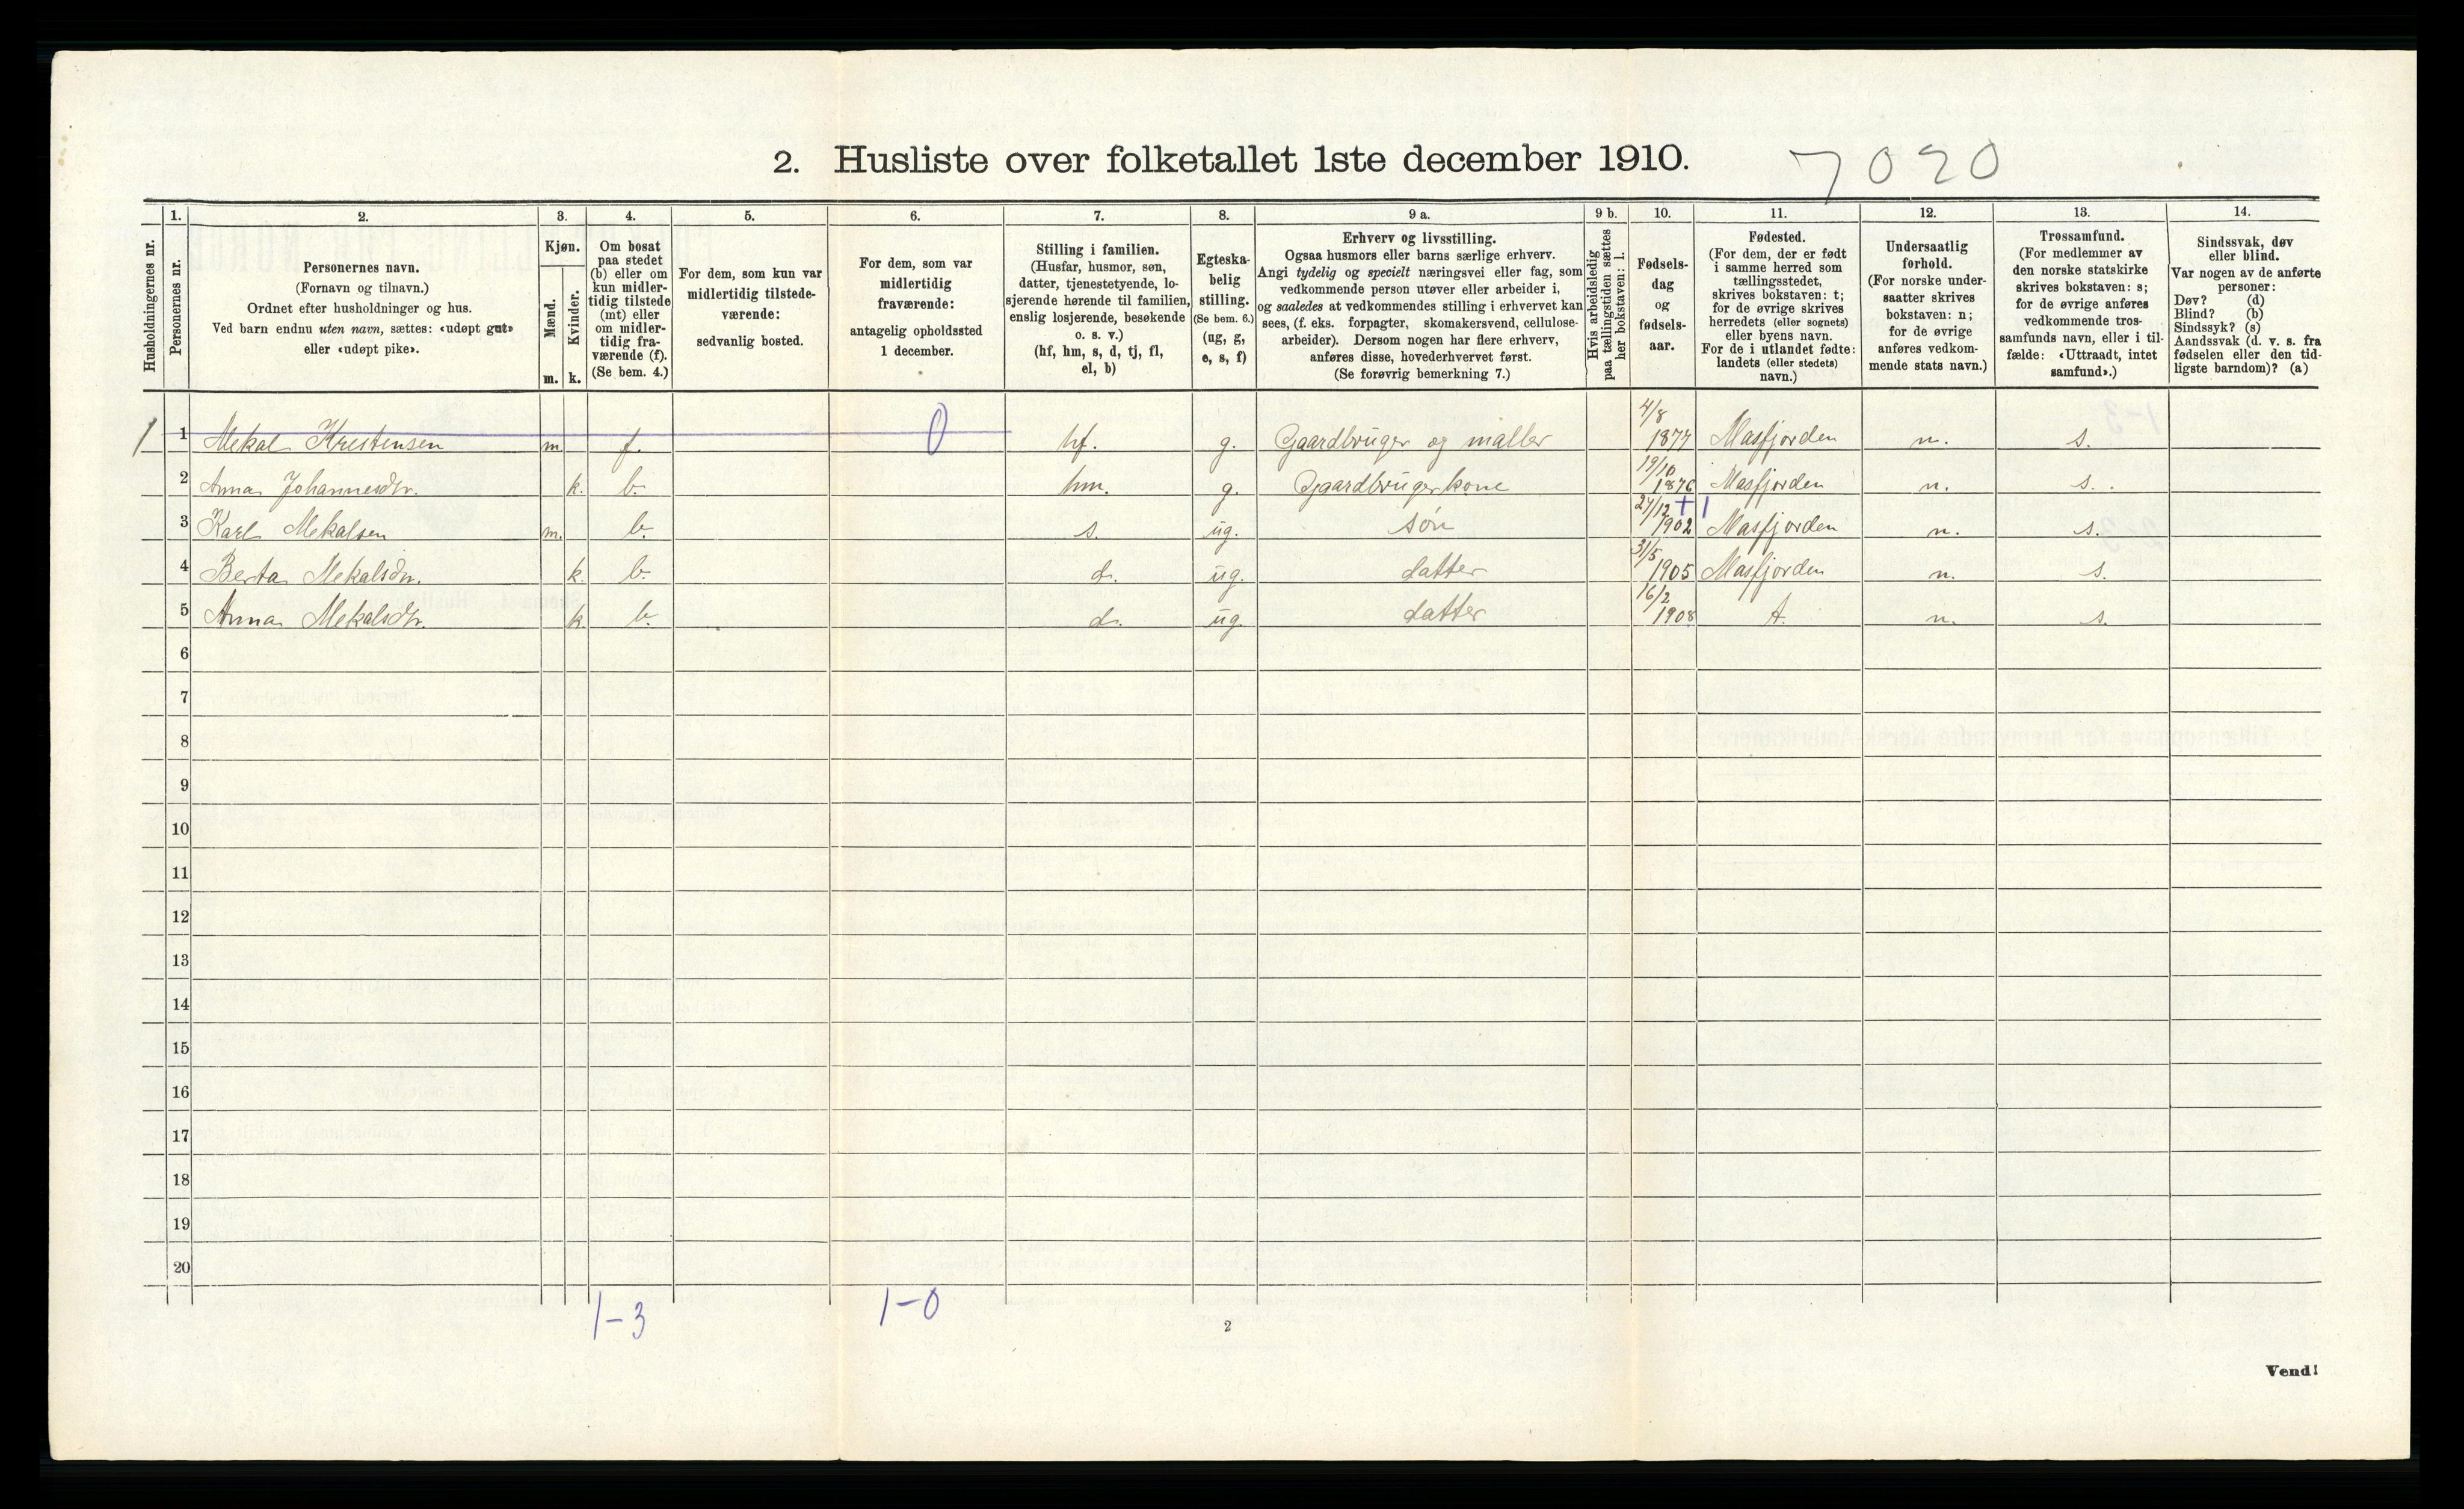 2. Husliste over folketallet 1ste december 1910.
7020
Husholdningernes nr.
1.
Personernes nr.
2.
Personernes navn.
(Fornavn og tilnavn.)
Ordnet efter husholdninger og hus.
Ved barn endnu uten navn, sættes: «udøpt gut»
eller «udøpt pike».
3.
Kjøn.
Mænd.
Kvinder.
m. k.
4.
Om bosat
paa stedet
(b) eller om
kun midler-
tidig tilstede
(mt) eller
om midler-
tidig fra-
værende (f).
(Se bem. 4.)
5.
For dem, som kun var
midlertidig tilstede-
værende:
sedvanlig bosted.
6.
For dem, som var
midlertidig
fraværende:
antagelig opholdssted
1 december.
7.
Stilling i familien.
(Husfar, husmor, søn,
datter, tjenestetyende, lo-
sjerende hørende til familien,
enslig losjerende, besøkende
o. s. v.)
(hf, hm, s, d, tj, fl,
el, b)
8.
Egteska-
belig
stilling.
(Se bem. 6.)
(ug, g,
e, s, f)
9 a.
Erhverv og livsstilling.
Ogsaa husmors eller barns særlige erhverv.
Angi tydelig og specielt næringsvei eller fag, som
vedkommende person utøver eller arbeider i,
og saaledes at vedkommendes stilling i erhvervet kan
sees, (f. eks. forpagter, skomakersvend, cellulose-
arbeider). Dersom nogen har flere erhverv,
anføres disse, hovederhvervet først.
(Se forøvrig bemerkning 7.)
9 b.
Hvis arbeidsledig
paa tællingstiden sættes
her bokstaven: l.
10.
Fødsels-
dag
og
fødsels-
aar.
11.
Fødested.
(For dem, der er født
i samme herred som
tællingsstedet,
skrives bokstaven: t;
for de øvrige skrives
herredets (eller sognets)
eller byens navn.
For de i utlandet fødte:
landets (eller stedets)
navn.)
12.
Undersaatlig
forhold.
(For norske under-
saatter skrives
bokstaven: n;
for de øvrige
anføres vedkom-
mende stats navn.)
13.
Trossamfund.
(For medlemmer av
den norske statskirke
skrives bokstaven: s;
for de øvrige anføres
vedkommende tros-
samfunds navn, eller i til-
fælde: «Uttraadt, intet
samfund».)
14.
Sindssvak, døv
eller blind.
Var nogen av de anførte
personer:
Døv? (d)
Blind? (b)
Sindssyk? (s)
Aandssvak (d. v. s. fra
fødselen eller den tid-
ligste barndom)? (a)
1 1 Mekal Kristensen m. f. 0 hf. g. Gaardbruger og maller 4/8 1877 Masfjorden n. s.
2 Anna Johannesdtr. k. b. hm. g. Gaardbrugerkone 19/10 1876 Masfjorden n. s.
3 Karl Mekalsen m. b. s. ug. søn 24/12 1902 + 1 Masfjorden n. s.
4 Berta Mekalsdtr. k. b. d. ug. datter 31/5 1905 Masfjorden n. s.
5 Anna Mekalsdtr. k. b. d. ug. datter 16/2 1908 t. n. s.
6
7
8
9
10
11
12
13
14
15
16
17
18
19
20
1-3 1-0
2
Vend!